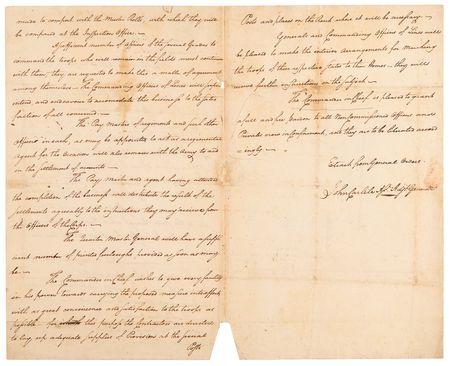 nies to comport with the Muster Rolls, with which they will
be compared at the Inspection Office. —
A sufficient number of officers of the several Grades to
command the troops who will remain in the field must continue
with them; they are requested to make this a matter of agreement
among themselves — The Commanding Officers of Lines will
and endeavour to accomodate this business to the satis-
faction of all concerned. —
The Pay Master of regiments and such other
officers in each, as may be appointed to act as regimental
Agent for the Occasion will also remain with the Army to aid
in the settlement of accounts. —
The Pay Master and agent having attended
the completion of the business will distribute the result of the
settlements agreeably to the instructions they may receive from
the Officers of
The Quarter Master General will have a suffi-
cient number of printed furloughs provided as soon as may
be —
The Commander in Chief wishes to give every facility
in his power towards carrying the proposed measure into effect
with as great convenience and satisfaction to the troops as
possible for this purpose the Contractors are directed
to lay up adequate supplies of Provisions at the several
Posts
Posts and places on the Road where it will be necessary
—
Generals and Commanding Officers of Lines will
be pleased to make the interior arrangements for Marching
the troops of their respective States to their Homes — they will
further instructions on the subject. —
The Commander in Chief is pleased to grant
a full and free Pardon to all Non Commissioned Officers and
Privates now in confinement, and they are to be liberated accord
ingly —
Extract from General Orders
John Carlile